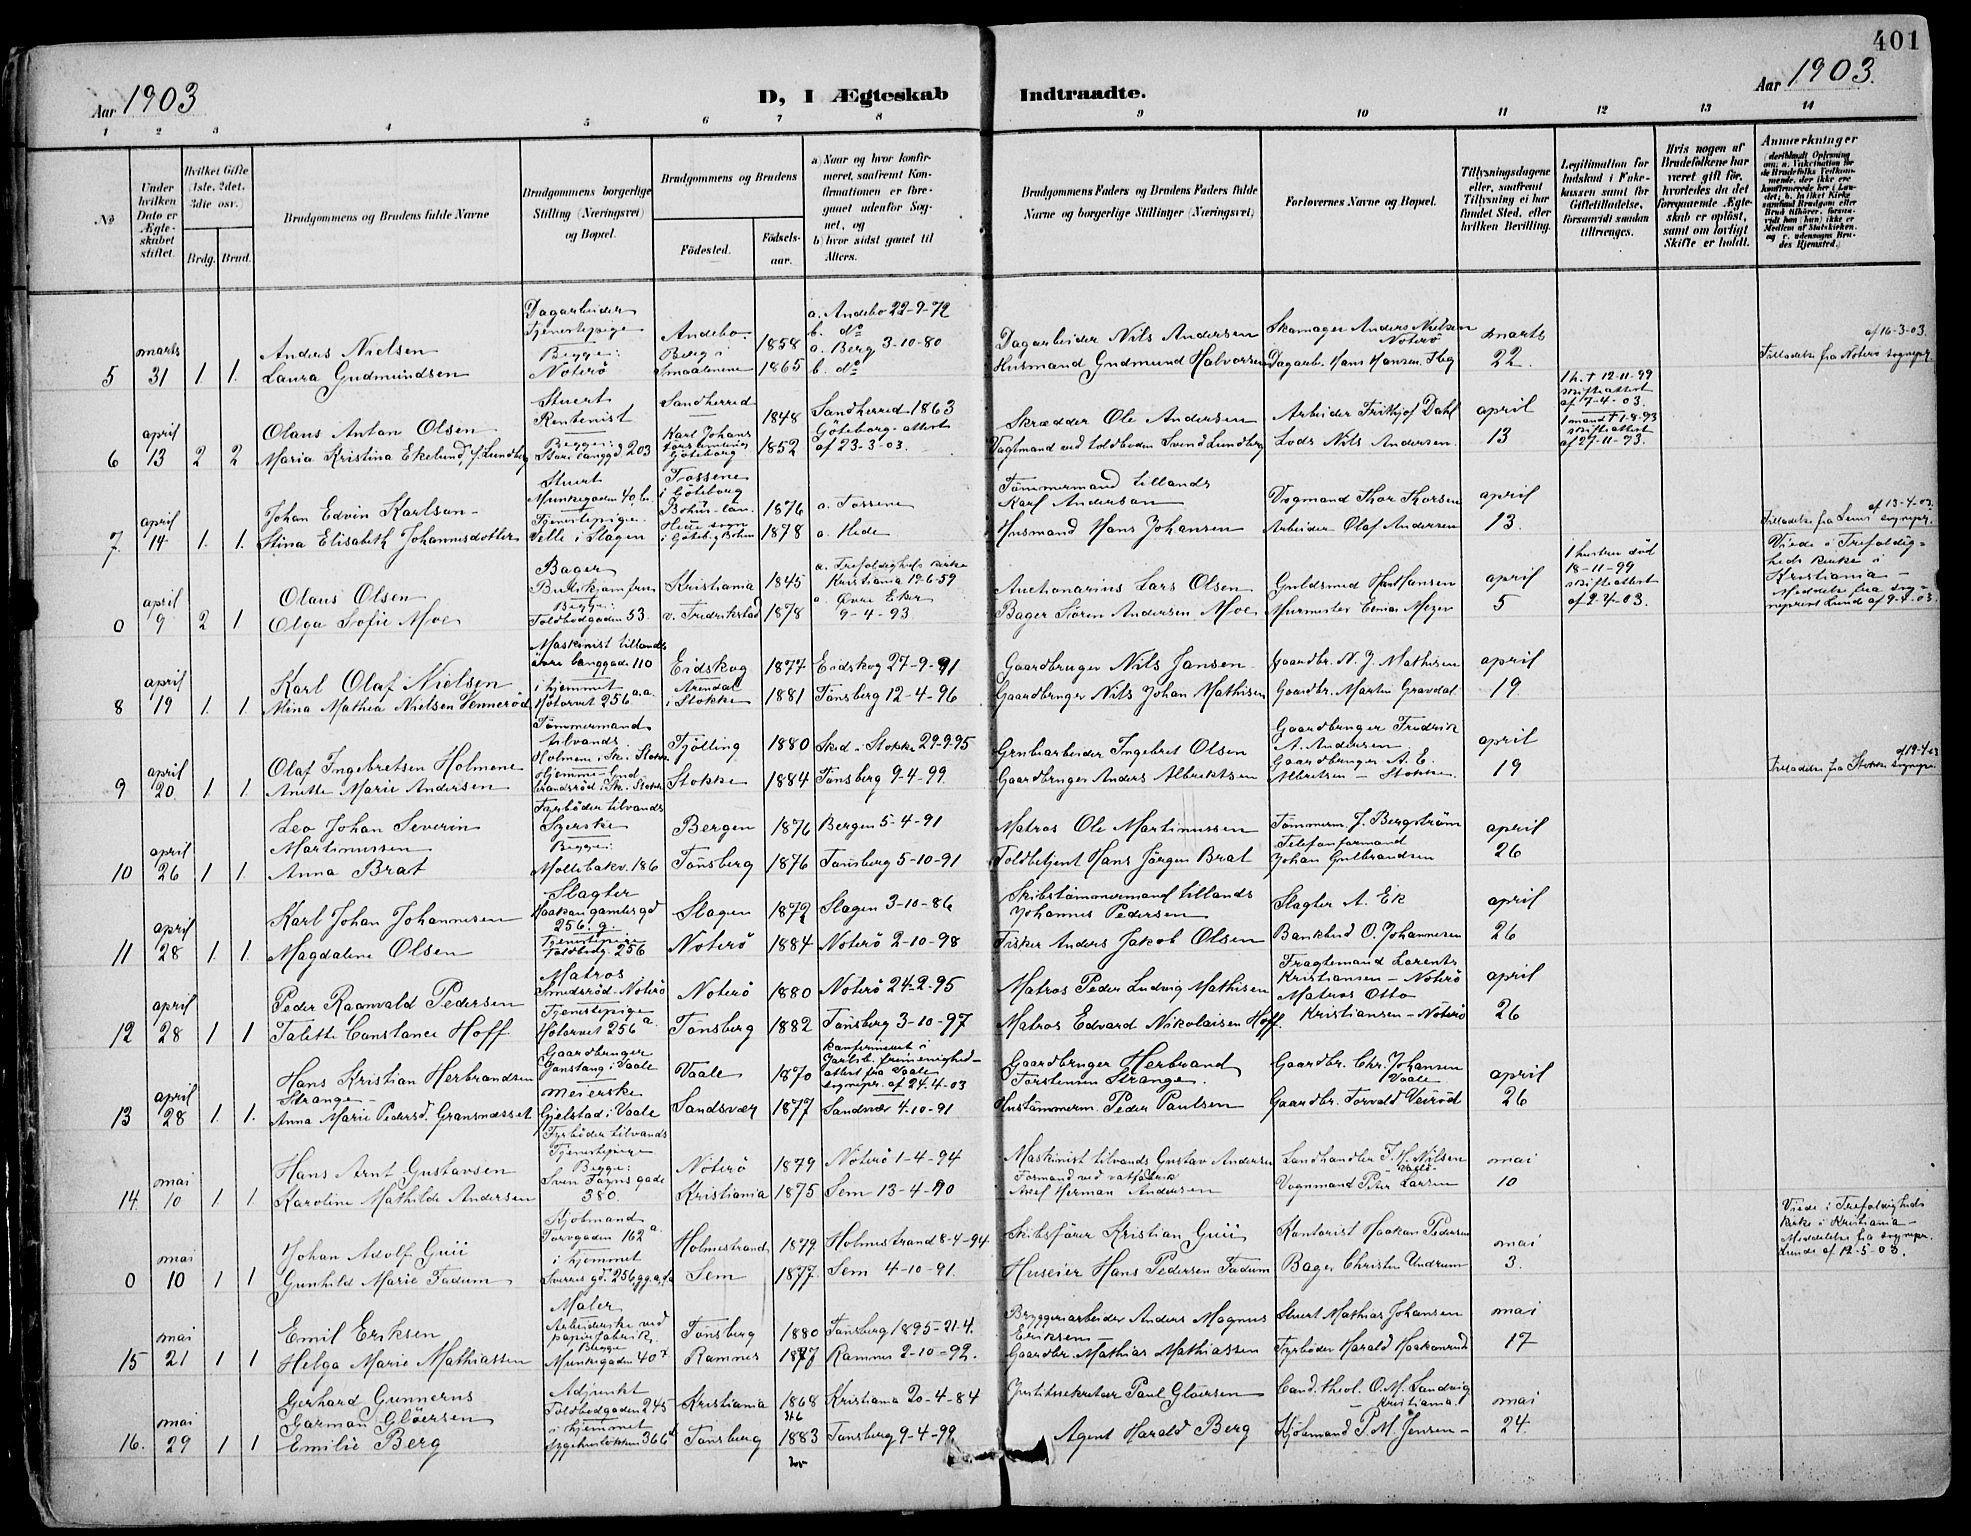 401
Aar 1903
D, I Ægteskab Indtraadte.
Aar 1903.
1 2 3 4 5 6 7 8 9 10 11 12 13 14
No
Under hvilken Dato er Ægteskabet stiftet.
Hvilket Gifte (1ste, 2det, 3die osv.)
Brdg. Brud.
Brudgommens og Brudens fulde Navne
Brudgommens borgerlige Stilling (Næringsvei) og Bopæl.
Brudgommens og Brudens
Fødested. Fødselsaar.
a) Naar og hvor konfirmeret, saafremt Konfirmationen er foregaaet udenfor Sognet, og
b) hvor sidst gaaet til Alters.
Brudgommens Faders og Brudens Faders fulde Navne og borgerlige Stillinger (Næringsvei)
Forlovernes Navne og Bopæl.
Tillysningsdagene eller, saafremt Tillysning ei har fundet Sted, efter hvilken Bevilling.
Legitimation for Indskud i Enkekassen samt for Giftetilladelse, forsaavidt saadan tiltrænges.
Hvis nogen af Brudefolkene har været gift før, hvorledes da det foregaaende Ægteskab er opløst, samt om lovligt Skifte er holdt.
Anmerkninger
5 marts 31 1 1.
Anders Nielsen
Laura Gudmundsen
Dagarbeider
Tjenestepige
Begge:
Nøterø
Andebo 1858
Berg i Smaalenene 1865
a. Andebo 22-9-72
b. do
a. Berg 3-10-80
b. do
Dagarbeider Nils Andersen
Husmand Gudmund Halvorsen
Skomager Anders Nielsen Nøterø
Dagarb. Hans Hansen
marts 22.
af 16-3-03.
Tilladelse fra Nøterø sognepr.
6 april 13 2 2
Olaus Anton Olsen
Maria Kristina Ekelund, f. Lundberg
Stuert
Rentenist
Begge:
Storlanggd. 203
Sandherred 1848
Karl Johans forsamling Göteborg 1852
Sandherred 1863
Göteborg. attest
af 23-3-03.
Skrædder Ole Andersen
Vagtmand ved toldboden Svend Lundberg
Arbeider Frithjof Dahl
Lods Nils Andersen.
april 13
1 h. † 12-11-99
skifteattest
af 7-4-03.
1 mand † 1-8-93
skifteattest
af 27-11-93.
7. april 14 1. 1.
Johan Edvin Karlson
Stina Elisabeth Johannesdotter
Stuert
Munkegaden 40 b.
Tjenestepige
Velle i Slagen
Tossene i Göteborg Bohuslän 1876
Hede sogn i Göteb. g Bohus 1878
a. Tossene
a. Hede
Tømmermand tillands
Karl Anderson
Husmand Hans Johansen
Vognmand Thor Thorsen
Arbeider Olaf Andersen
april 13.
af 13-4-03.
Tilladelse fra Sems sognepr.
0 april 9 2 1
Olaus Olsen
Olga Sofie Moe
Bager
Butikjomfru
Begge:
Toldbodgaden 53.
Kristiania 1845
v. Fredrikstad 1878
a. Trefoldigheds kirke
Kristiania 19-6-59
a. Øvre Eker
9-4-93.
Auctionarius Lars Olsen
Bager Søren Andersen Moe
Guldsmed Hans Hansen
Murmester Einar Meyer
april 5
1 hustru død
18-11-99
skifteattest
af 2-4-03.
Viede i Trefoldigheds kirke i Kristiania – Meddelse fra sogneprest Lund af 9-4-03.
8 april 19 1. 1.
Karl Olaf Nielsen
Alina Mathea Nielsen Vennerød
Maskinist tillands
øvre langgade 110
i hjemmet
Møtorvet 256 a.a.
Eidskog 1877
Arendal i Stokke 1881
Eidskog 27-9-91
Tønsberg 12-4-96
Gaardbruger Nils Jansen
Gaardbruger Nils Johan Mathisen
Gaardbr. N. J. Mathisen
Gaardbr. Martin Gravdal
april 19.
9 april 20. 1 1
Olaf Ingebretsen Holmene
Anette Marie Andersen
Tømmermand tilvands
Holmene i Sk. i Stokke
Hjemme – Gud.
brandsrød i Sk. i Stokke
Tjølling 1880
Stokke 1884
Skee i Stokke 29-9-95
Tønsberg 9-4-99.
Grubearbeider Ingebret Olsen
Gaardbruger Anders Albrektsen
Gaardbruger Fredrik A. Andersen
Gaardbruger A. E. Albretsen – Stokke.
april 19
af 19-4-03
Tilladelse fra Stokke sognepr.
10 april 26 1 1
Leo Johan Severin Martinussen
Anna Brat
Fyrbøder tilvands
Syerske
Begge:
Møllebakv. 186
Bergen 1876
Tønsberg 1876
Bergen 5-4-91
Tønsberg 5-10-91
Matros Ole Martinussen
Toldbetjent Hans Jørgen Brat
Tømmerm. J. Bergstrøm
Telefonformand
Johan Gulbrandsen
april 26
11 april 28 1. 1.
Karl Johan Johannesen
Magdalene Olsen
Slagter
Haakon gamles gd
256. g.
Tjenestepi.
Toldbodg. 256
Slagen 1872
Nøterø 1884
Slagen 3-10-86
Nøterø 2-10-98
Skibstømmermand tillands
Johannes Pedersen
Fisker Anders Jakob Olsen
Slagter A. Ek
Bankbud O. Johannesen
april 26
12 april 28 1 1
Peder Raanvald Pedersen
Talette Constance Hoff
Matros
Smedsrød – Nøterø
Tjenestepige
Møtorvet 256 a
Nøterø 1880
Tønsberg 1882
Nøterø 24-2-95
Tønsberg 3-10-97
Matros Peder Ludvig Mathisen
Matros Edvard Nikolaisen Hoff.
Fragtemand Lorents Kristiansen – Nøterø
Matros Otto Kristiansen – Nøterø
april 26
13 april 28 1. 1.
Hans Kristian Herbrandsen Strange –
Anna Marie Pedersd. Gransnæsset
Gaardbruger
Gunstang i Vaale
Meierske
Gjelstad i Vaale
Vaale 1870
Sandsvær 1877
Konfirmeret i
Jarlsb. frimenighed –
attest fra Vaale
sognepr. af 24.4-03
Sandsvær 4-10-91
Gaardbruger Herbrand
Torstensen Strange.
Hustømmerm. Peder Paulsen
Gaardbr. Chr. Johansen Vaale
Gaardbr. Torvald Veirød
april 26
14. mai 10 1 1
Hans Arnt Gustavsen
Karoline Mathilde Andersen
Fyrbøder tilvands
Tjenestepige
Begge:
Sven Foyns gade
380.
Nøterø 1879
Kristiania 1875
Nøterø 1-4-94
Sem 13-4-90
Maskinist tilvands Gustav Andersen
Formand ved vatfabrik
Axel Herman Andersen
Landhandler J. M. Nilsen – Vaale –
Vognmand Peter Larsen
mai 10
0 mai 10 1 1
Johan Adolf Guii
Gunhild Marie Fadum
Kjøbmand
Torvgaden 162 a.
i hjemmet
Sverres gd. 256
Holmestrand 1879
Sem 1877.
Holmestrand 8-4-94
Sem 4-10-91.
Skibsfører Kristian Guii
Huseier Hans Pedersen Fadum
Kontorist Haakon Pedersen
Bager Christen Undrum
mai 3.
Viede i Trefoldigheds kirke i Kristiania – Meddelelse fra sognepr. Lunde af 12-5-03.
15 mai 21 1 1
Emil Eriksen
Helga Marie Mathiassen
Maler
Arbeiderske ved papirfabrik.
Begge
Munkegaden 40
Tønsberg 1880
Ramnes 1877
Tønsberg 1895-21-4.
Ramnes 2-10-92.
Bryggeriarbeider Anders Magnus Eriksen –
Gaardbr. Mathias Mathiassen
Stuert Mathias Johansen
Fyrbøder Harald Haakonrud
mai 17
16. mai 29 1 1
Gerhard Gunnerus Garman Gløersen
Emilie Berg
Adjunkt
Toldbodgaden 245
i hjemmet
Sygehusløkken 366 d
Kristiania 1868
Tønsberg 1883
Kristiania 20-4-84
Tønsberg 9-4-99
Justitssekretær Paul Gløersen
Agent Harald Berg
Cand. theol. O. M. Sandvig – Kristiania.
Kjøbmand P. M. Jensen –
mai 24.